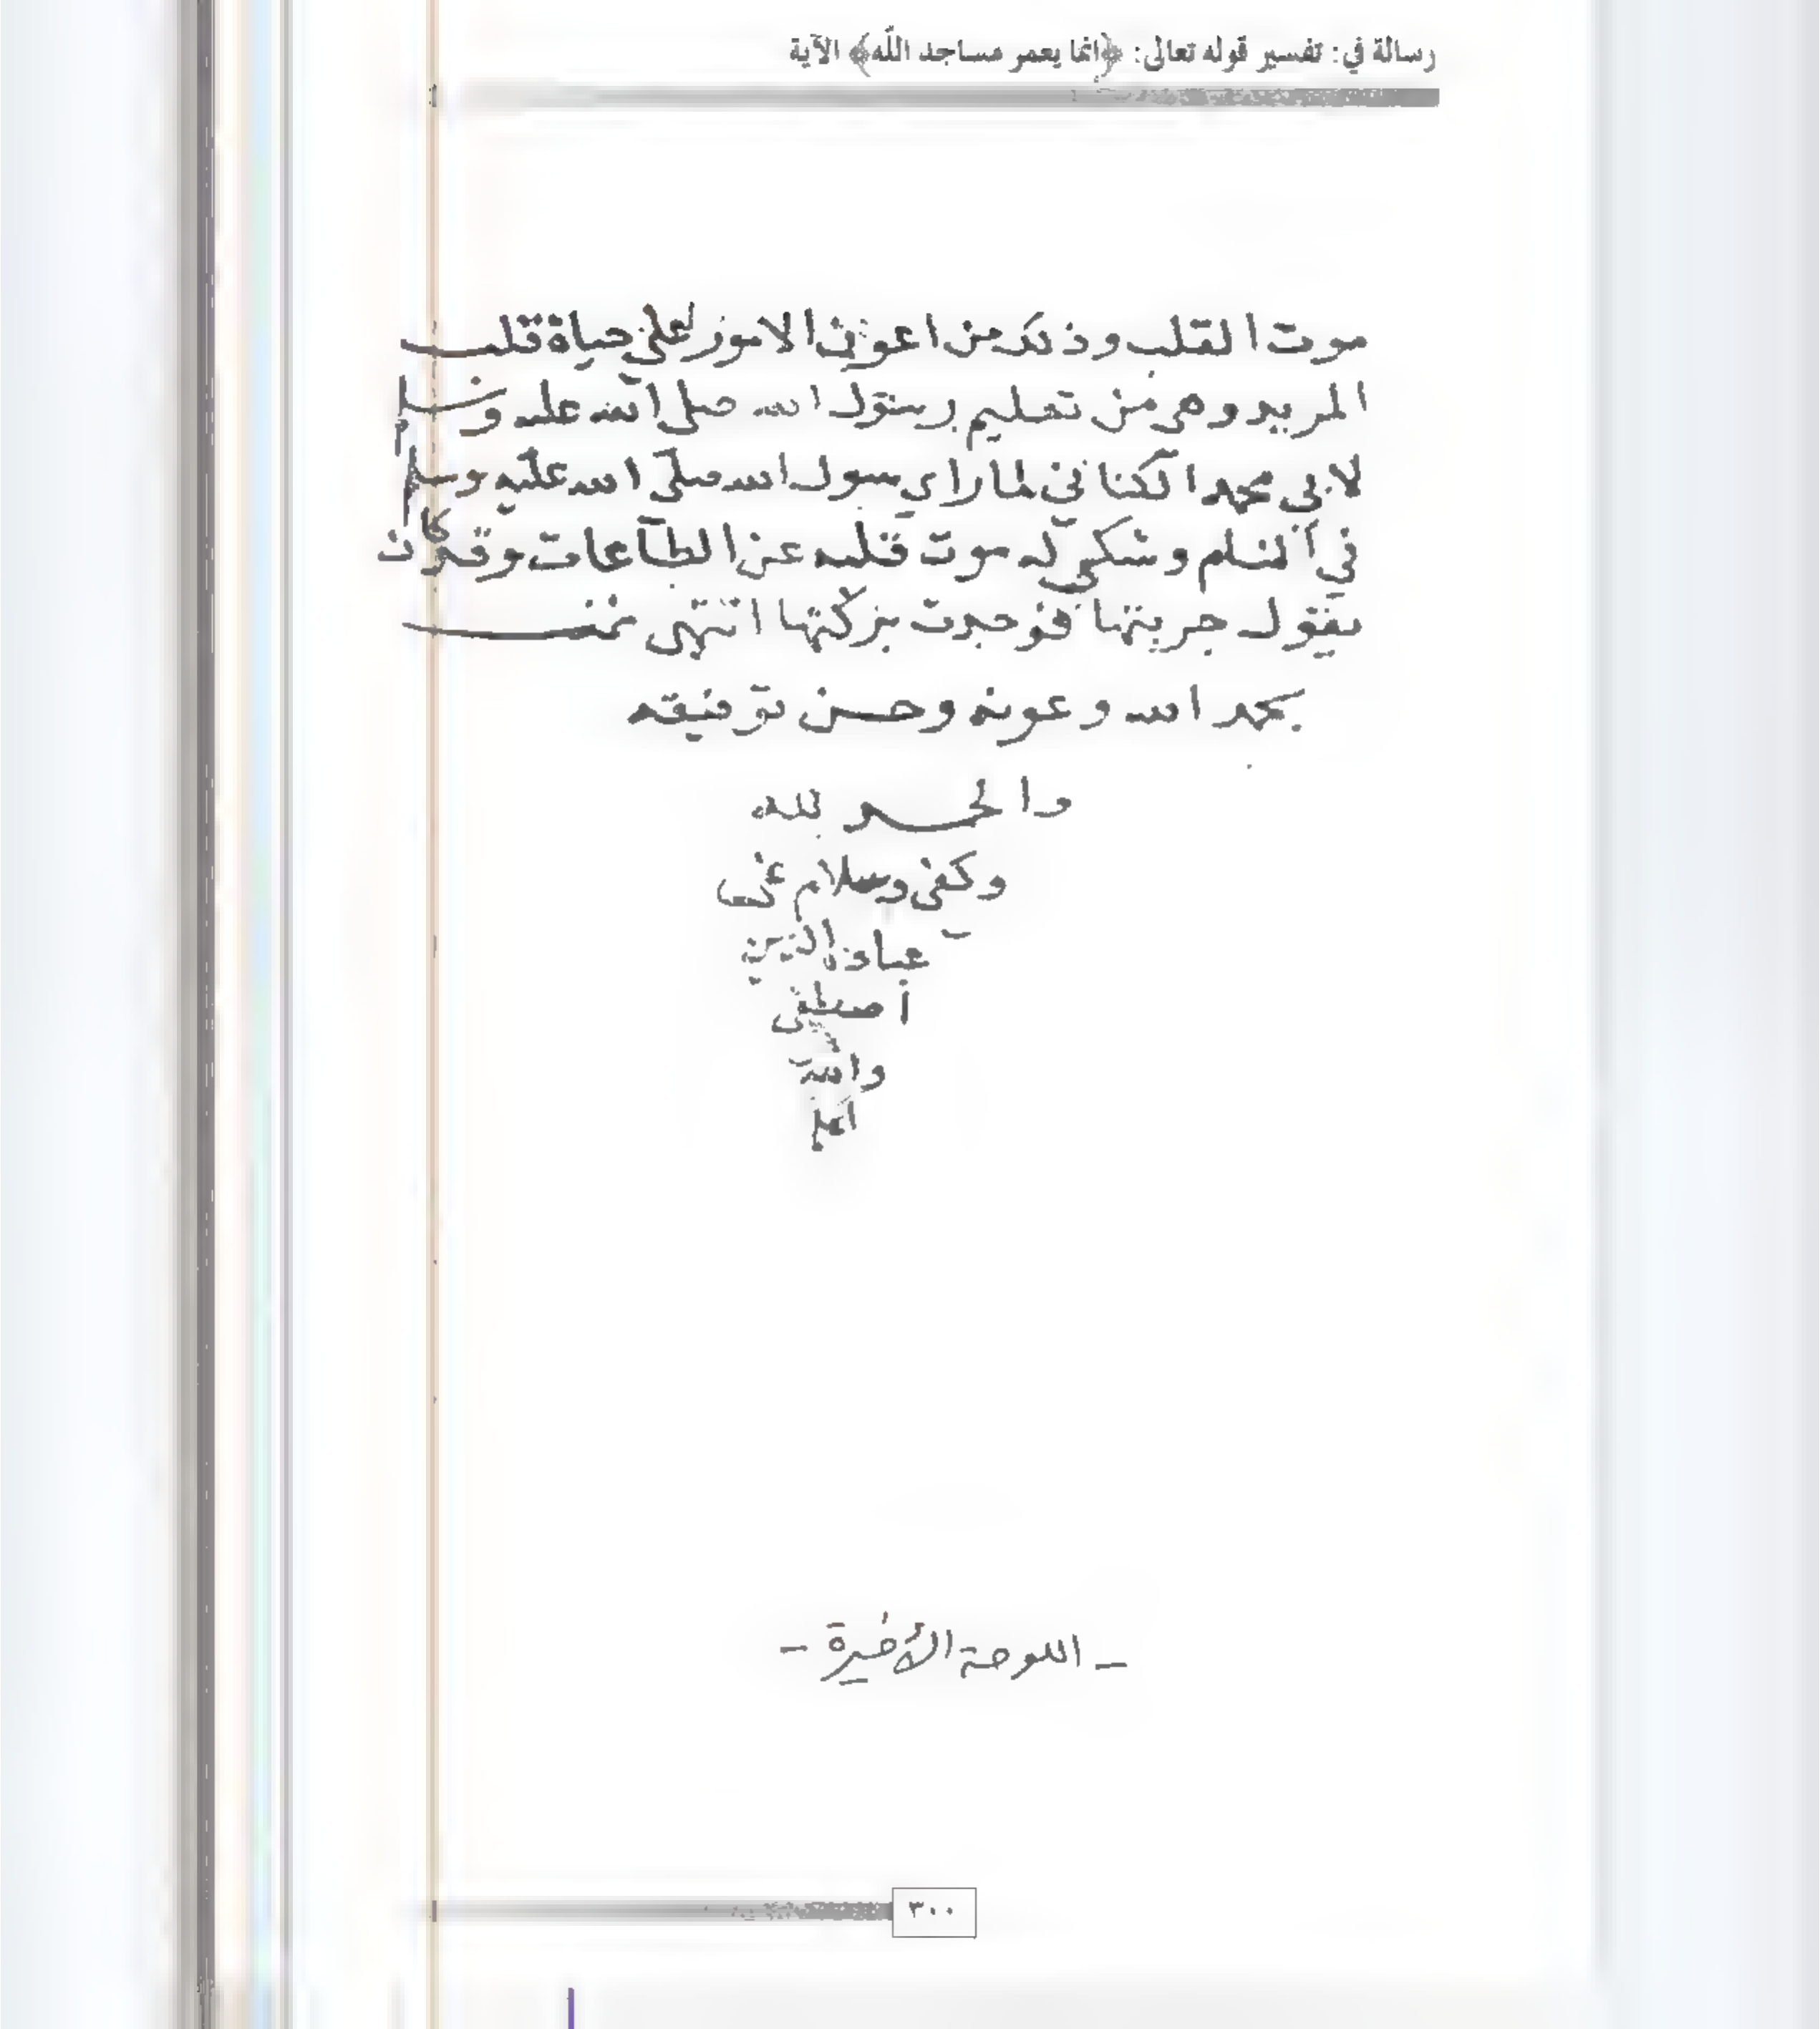 رسالة في: تفسير قوله تعالى: ﴿انما يعمر مساجد اللّه﴾ الآية
موت القلب وذلك من اعون الامور على حياة قلب
المريد وهي من تعليم رسول الله صلى الله عليه وسلم
لابي محمد الكناني لما راي سول الله صلى الله عليه وسلم
في المنام وشكى له موت قلبه عن الطاعات وقد كان
يقول جربتها فوجدت بركتها انتهى تمت
بحمد الله وعونه وحسن توفيقه
والحمد لله
وكفى وسلام على
عباده الذين
أصطفى
والله
اعلم
- اللوحة الأخيرة -
٣٠٠